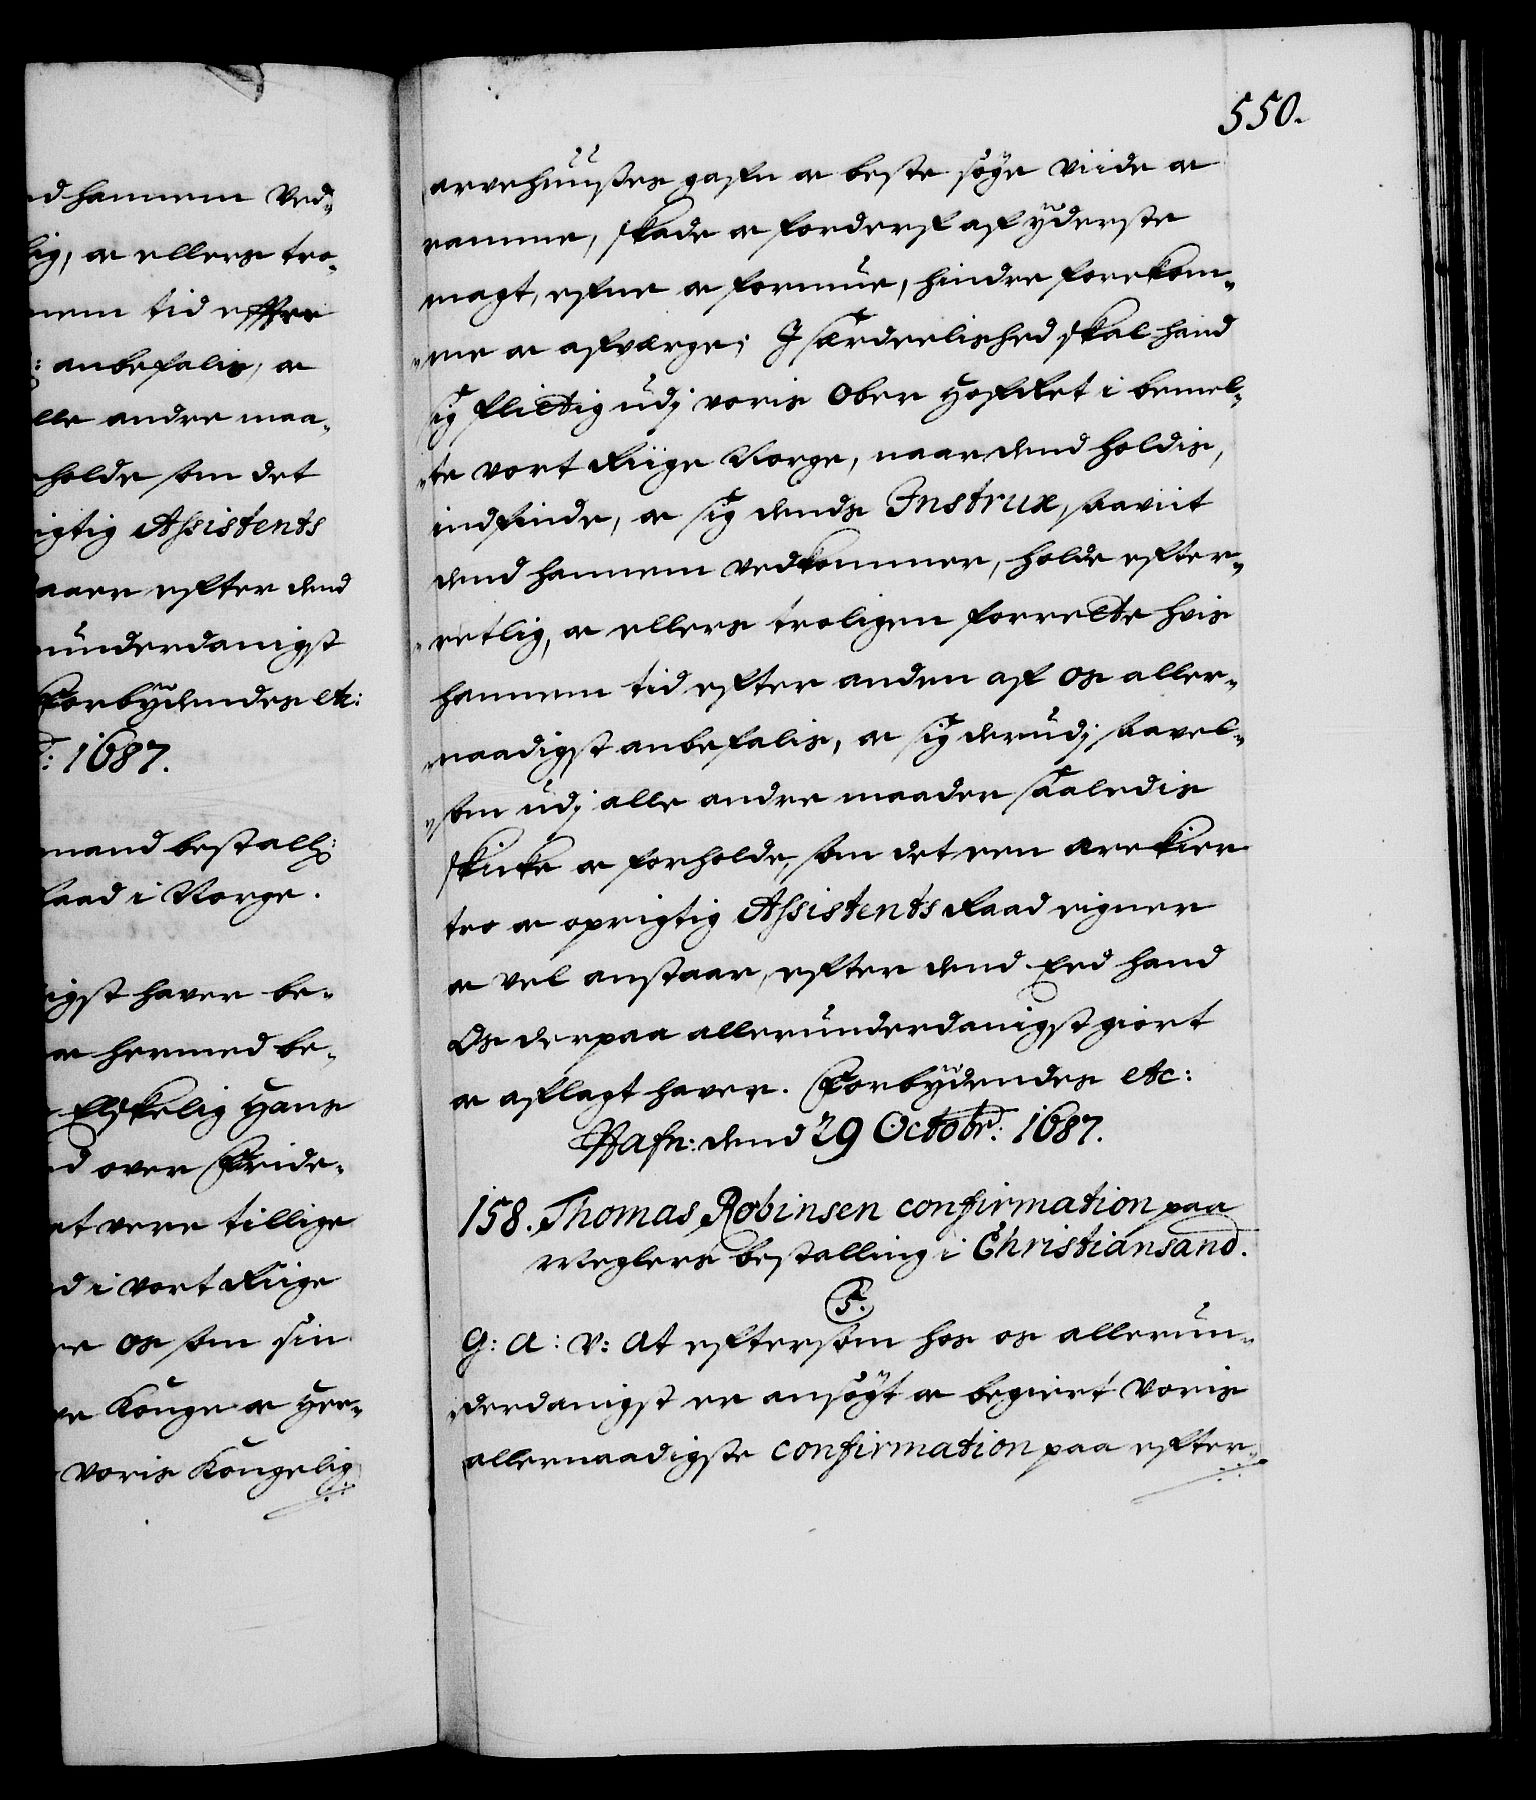 ed hannem ved-
lig, oc ellers tro-
nem tid effter
: anbefalis, oc
lle andre maa-
holde som det
rigtig Assistents
taaer efter dend
underdanigst
Forbydendes etc:
: 1687.
mand bestall:
Raad i Norge.
igst haver be-
oc hermed be-
Elskelig Hans
d over Fride-
at vere tillige
d i vort Riige
re os som sin
ve Konge oc Her-
voris Kongelig
550.
arvehuußes gafn oc beste söge viide oc
ramme, skade oc forderf af yderste
magt, efne oc formue, hindre forekom-
me oc afværge; I særdeelished skal hand
sig flittig udj voris Ober HofRet i bemel-
te vort Riige Norge, naar dend holdis,
indfinde, oc sig dends Instrux, saavit
dend hannem vedkommer, holde efter-
retlig, oc ellers troligen forrette hvis
hannem tid efter anden af os aller-
naadigst anbefalis, oc sig derudj saavel-
som udj alle andre maader saaledis
skicke oc forholde, som det een ærekier
tro oc oprigtig Assistents Raad eigner
oc vel anstaar, efter dend Eed hand
Os derpaa allerunderdanigst giort
oc aflagt haver. Forbydendes etc:
Hafn: dend 29 Octobr: 1687.
158. Thomas Robinsen confirmation paa
Meglers bestalling i Christiansand.
5.
G: A: V: At eftersom hos os allerun-
derdanigst er ansögt oc begiert voris
allernaadigste confirmation paa efter-